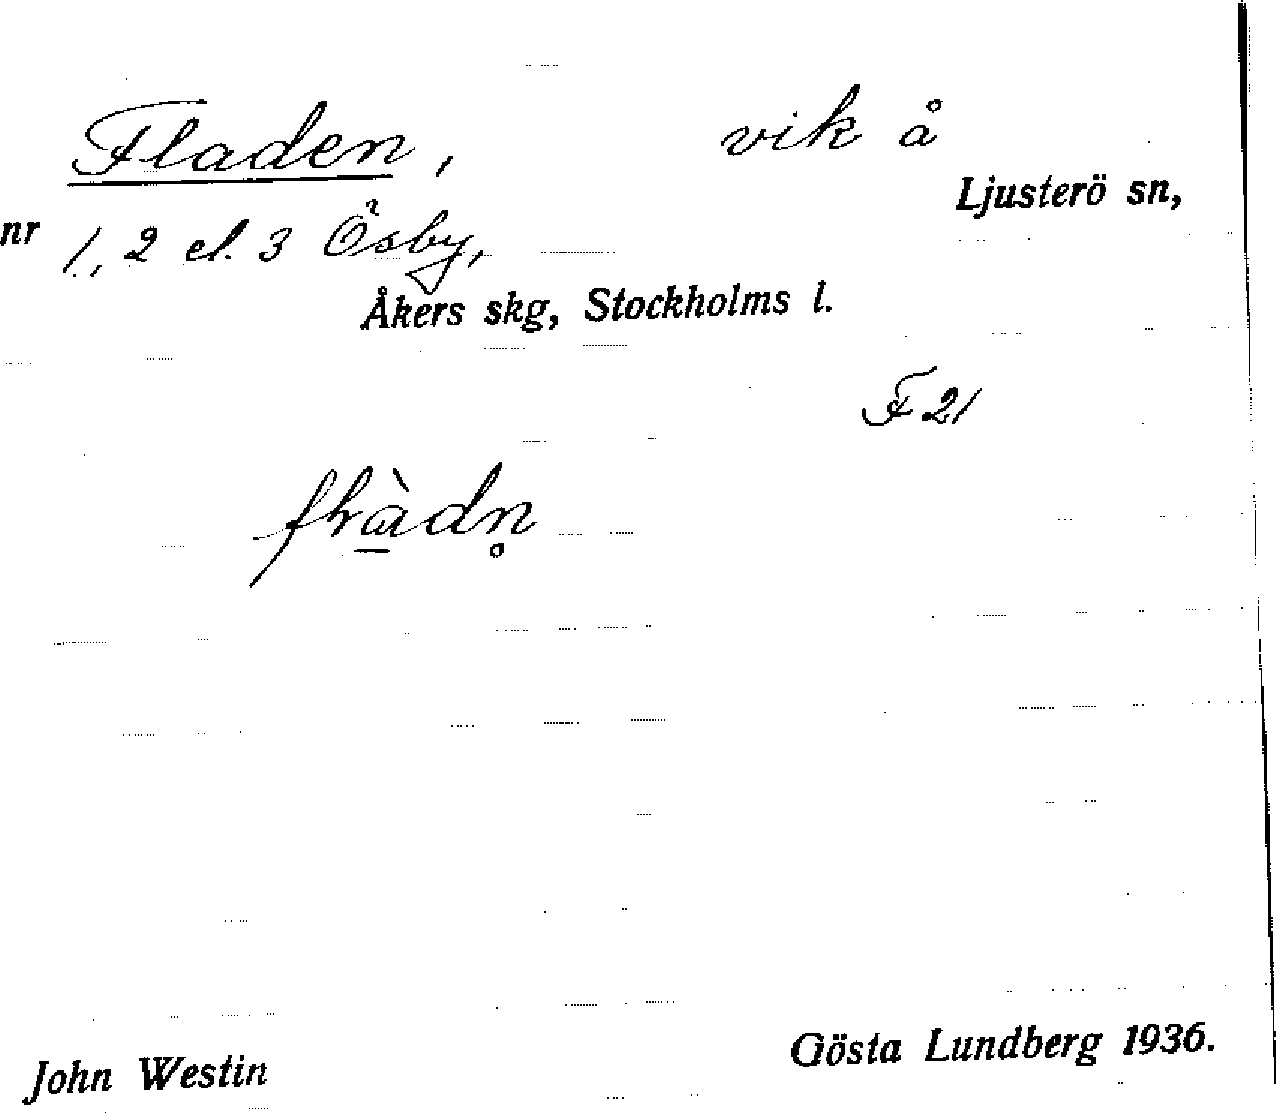 Fladen, vik å
Ljusterö sn,
nr 1, 2 el. 3 Ösby,
Åkers skg, Stockholms l.
F 21
John Westin
Gösta Lundberg 1936.